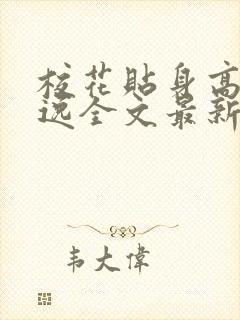 校花贴身高
逸全文最新
韦大伟